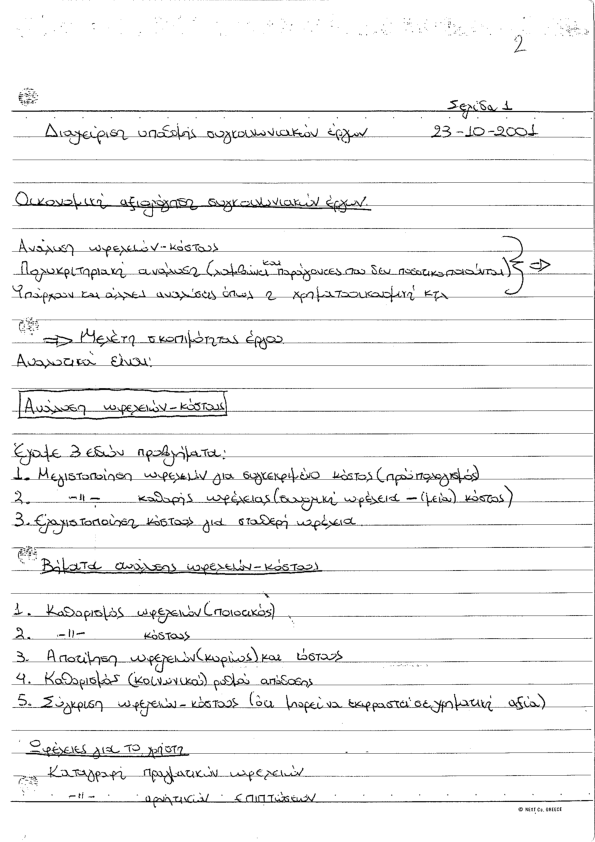 2
Σελίδα 1
Διαχείριση υποδομής συγκοινωνιακών έργων 23-10-2001
Οικονομική αξιολόγηση συγκοινωνιακών έργων.
Ανάλυση ωφελειών-κόστους
Πολυκριτηριακή ανάλυση (λαμβάνει και παράγοντες που δεν ποσοτικοποιούνται) ⇒
Υπάρχουν και άλλες αναλύσεις όπως η χρηματοοικονομική κτλ
⇒ Μελέτη σκοπιμότητας έργου
Αναλυτικά είναι:
Ανάλυση ωφελειών-κόστους
Έχουμε 3 ειδών προβλήματα:
1. Μεγιστοποίηση ωφελειών για συγκεκριμένο κόστος (προϋπολογισμός)
2. -〃- καθαρής ωφέλειας (συνολική ωφέλεια - (μείον) κόστος)
3. Ελαχιστοποίηση κόστους για σταθερή ωφέλεια
Βήματα ανάλυσης ωφελειών-κόστους
1. Καθορισμός ωφελειών (ποιοτικός)
2. -〃- κόστους
3. Αποτίμηση ωφελειών (κυρίως) και κόστους
4. Καθορισμός (κοινωνικού) ρυθμού απόδοσης
5. Σύγκριση ωφελειών-κόστους (ότι μπορεί να εκφραστεί σε χρηματική αξία)
Ωφέλειες για το χρήστη
Καταγραφή πραγματικών ωφελειών
-〃- αρνητικών επιπτώσεων
© NEXT Co. GREECE